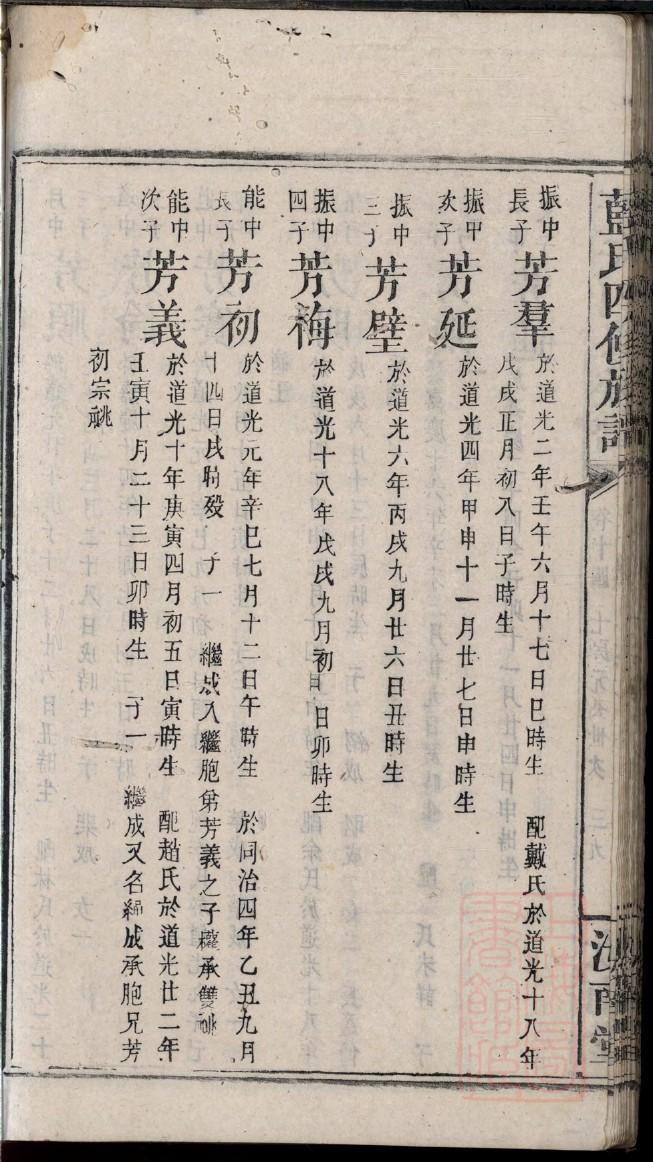 藍氏四修族譜
汝南堂
振中長子 芳羣 於道光二年壬午六月十七日巳時生 配戴氏於道光十八年
戊戌正月初八日子時生
振中次子 芳延 於道光四年甲申十一月廿七日申時生
振中三子 芳璧 於道光六年丙戌九月廿六日丑時生
振中四子 芳梅 於道光十八年戊戌九月初 日卯時生
能中長子 芳初 於道光元年辛巳七月十二日午時生 於同治四年乙丑九月
十四日戌時歿 子一 繼成入繼胞弟芳義之子權承雙祧
能中次子 芳義 於道光十年庚寅四月初五日寅時生 配趙氏於道光廿二年
壬寅十月二十三日卯時生 子一 繼成又名綿成承胞兄芳
初宗祧